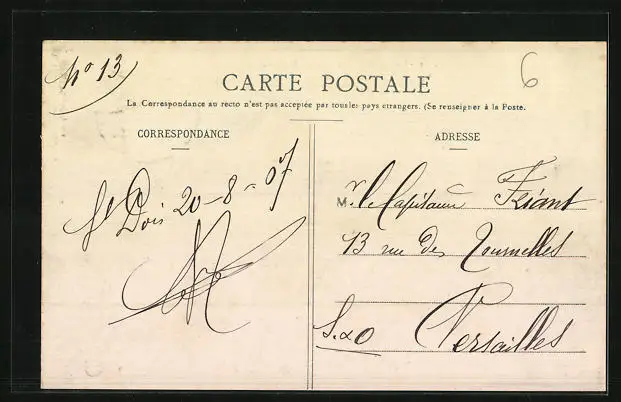 No 13
6
CARTE POSTALE
La Correspondance au recto n'est pas acceptée par tous les pays etrangers. (Se renseigner à la Poste.
CORRESPONDANCE
20-8-07
ADRESSE
M. r le Capitaine Friant
13 rue des Tournelles
Versailles
S. & O